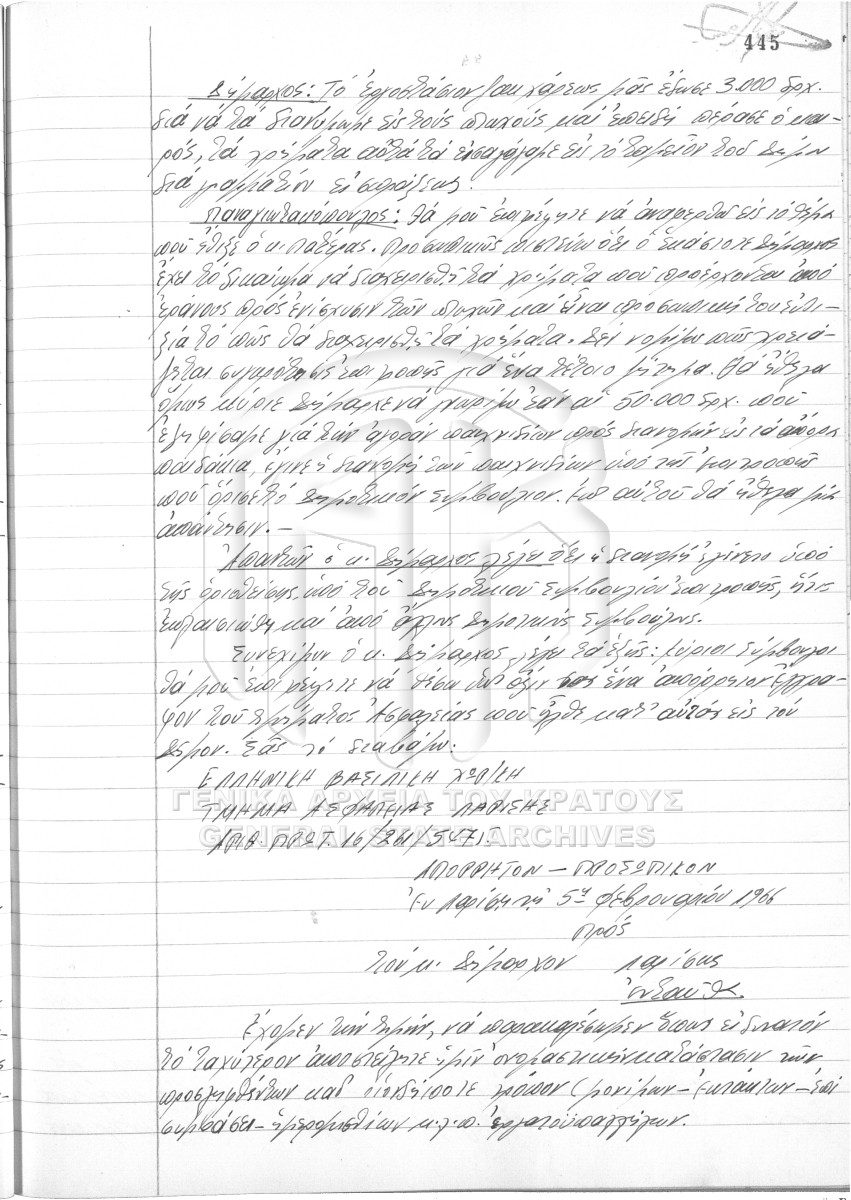 445
Δήμαρχος: Τό ἐργοστάσιον Ζαχάρεως μᾶς ἔδωσε 3.000 δρχ.
διά νά τά διανείμωμε εἰς τούς πτωχούς καί ἐπειδή πέρασε ὁ και-
ρός, τά χρήματα αὐτά τά εἰσαγάγαμε εἰς τό ταμεῖον τοῦ Δήμου
διά γραμματίου εἰσπράξεως.
Παναγιωτακόπουλος: Θά μοῦ ἐπιτρέψητε νά ἀναφερθῶ εἰς τό θέμα
πού ἔθιξε ὁ κ. Πατέρας. Προσωπικῶς πιστεύω ὅτι ὁ ἑκάστοτε Δήμαρχος
ἔχει τό δικαίωμα νά διαχειρισθῆ τά χρήματα πού προέρχονται ἀπό
ἐράνους πρός ἐνίσχυσιν τῶν πτωχῶν καί εἶναι προσωπική του εὐθι-
ξία τό πῶς θά διαχειρισθῆ τά χρήματα. Δέν νομίζω πῶς χρειά-
ζεται συγκρότησις ἐπιτροπῆς γιά ἕνα τέτοιο ζήτημα. Θά ἤθελα
ὅμως κύριε Δήμαρχε νά γνωρίζω ἐάν αἱ 50.000 δρχ. πού
ἐψηφίσαμε γιά τήν ἀγοράν παιχνιδίων πρός διανομήν εἰς τά ἄπορα
παιδάκια, ἔγινε ἡ διανομή τῶν παιχνιδίων ὑπό τῆς ἐπιτροπῆς
πού ὅρισε τό Δημοτικόν Συμβούλιον. Ἐπ' αὐτοῦ θά ἤθελα μίαν
ἀπάντησιν. —
Ἀπαντῶν ὁ κ. Δήμαρχος λέγει ὅτι ἡ διανομή ἐγένετο ὑπό
τῆς ὁρισθείσης ὑπό τοῦ Δημοτικοῦ Συμβουλίου ἐπιτροπῆς, ἥτις
ἐπλαισιώθη καί ἀπό ἄλλους Δημοτικούς Συμβούλους.
Συνεχίζων ὁ κ. Δήμαρχος λέγει τά ἑξῆς: Κύριοι Σύμβουλοι
θά μοῦ ἐπιτρέψετε νά θέσω ὑπ' ὄψιν σας ἕνα ἀπόρρητον ἔγγρα-
φον τοῦ τμήματος Ἀσφαλείας πού ἦλθε κατ' αὐτάς εἰς τόν
Δῆμον. Σᾶς τό διαβάζω:
ΕΛΛΗΝΙΚΗ ΒΑΣΙΛΙΚΗ ΧΩΡ/ΚΗ
ΤΜΗΜΑ ΑΣΦΑΛΕΙΑΣ ΛΑΡΙΣΗΣ
ΑΡΙΘ. ΠΡΩΤ. 16/261/5471.
ΑΠΟΡΡΗΤΟΝ – ΠΡΟΣΩΠΙΚΟΝ
Ἐν Λαρίσῃ τῇ 5ῃ Φεβρουαρίου 1966
Πρός
Τόν κ. Δήμαρχον Λαρίσης
Ἐνταῦθα.
Ἔχομεν τήν τιμήν, νά παρακαλέσωμεν ὅπως εἰ δυνατόν
τό ταχύτερον ἀποστείλητε ἡμῖν ὀνομαστικήν κατάστασιν τῶν
προσληφθέντων καθ' οἱονδήποτε τρόπον (μονίμων – ἐκτάκτων – ἐπί
συμβάσει – ἡμερομισθίων κ.λ.π. ἐργατοϋπαλλήλων.
ΓΕΝΙΚΑ ΑΡΧΕΙΑ ΤΟΥ ΚΡΑΤΟΥΣ
GENERAL STATE ARCHIVES